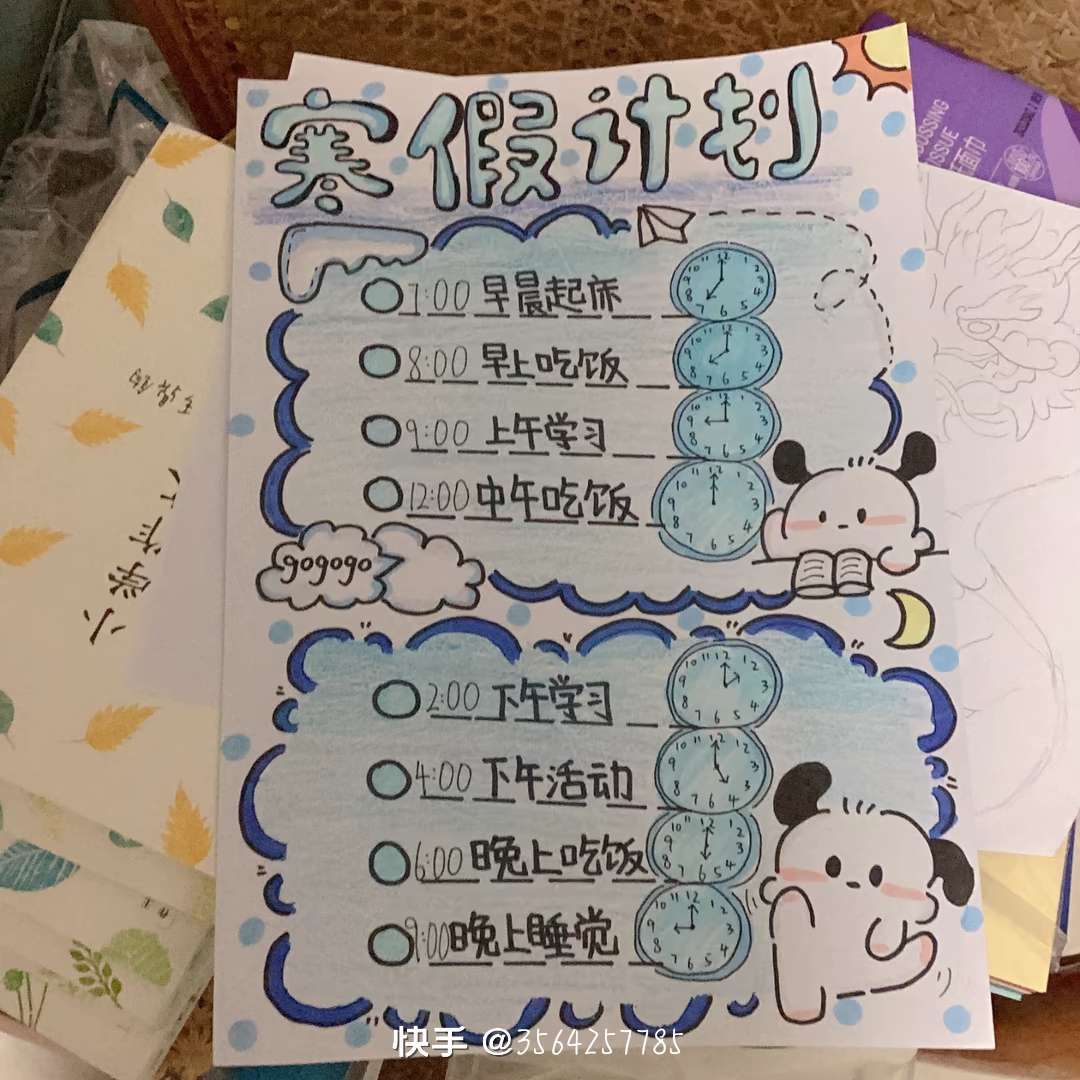 寒假计划
7:00 早晨起床
8:00 早上吃饭
9:00 上午学习
12:00 中午吃饭
gogogo
2:00 下午学习
4:00 下午活动
6:00 晚上吃饭
9:00 晚上睡觉
快手 @3564257785